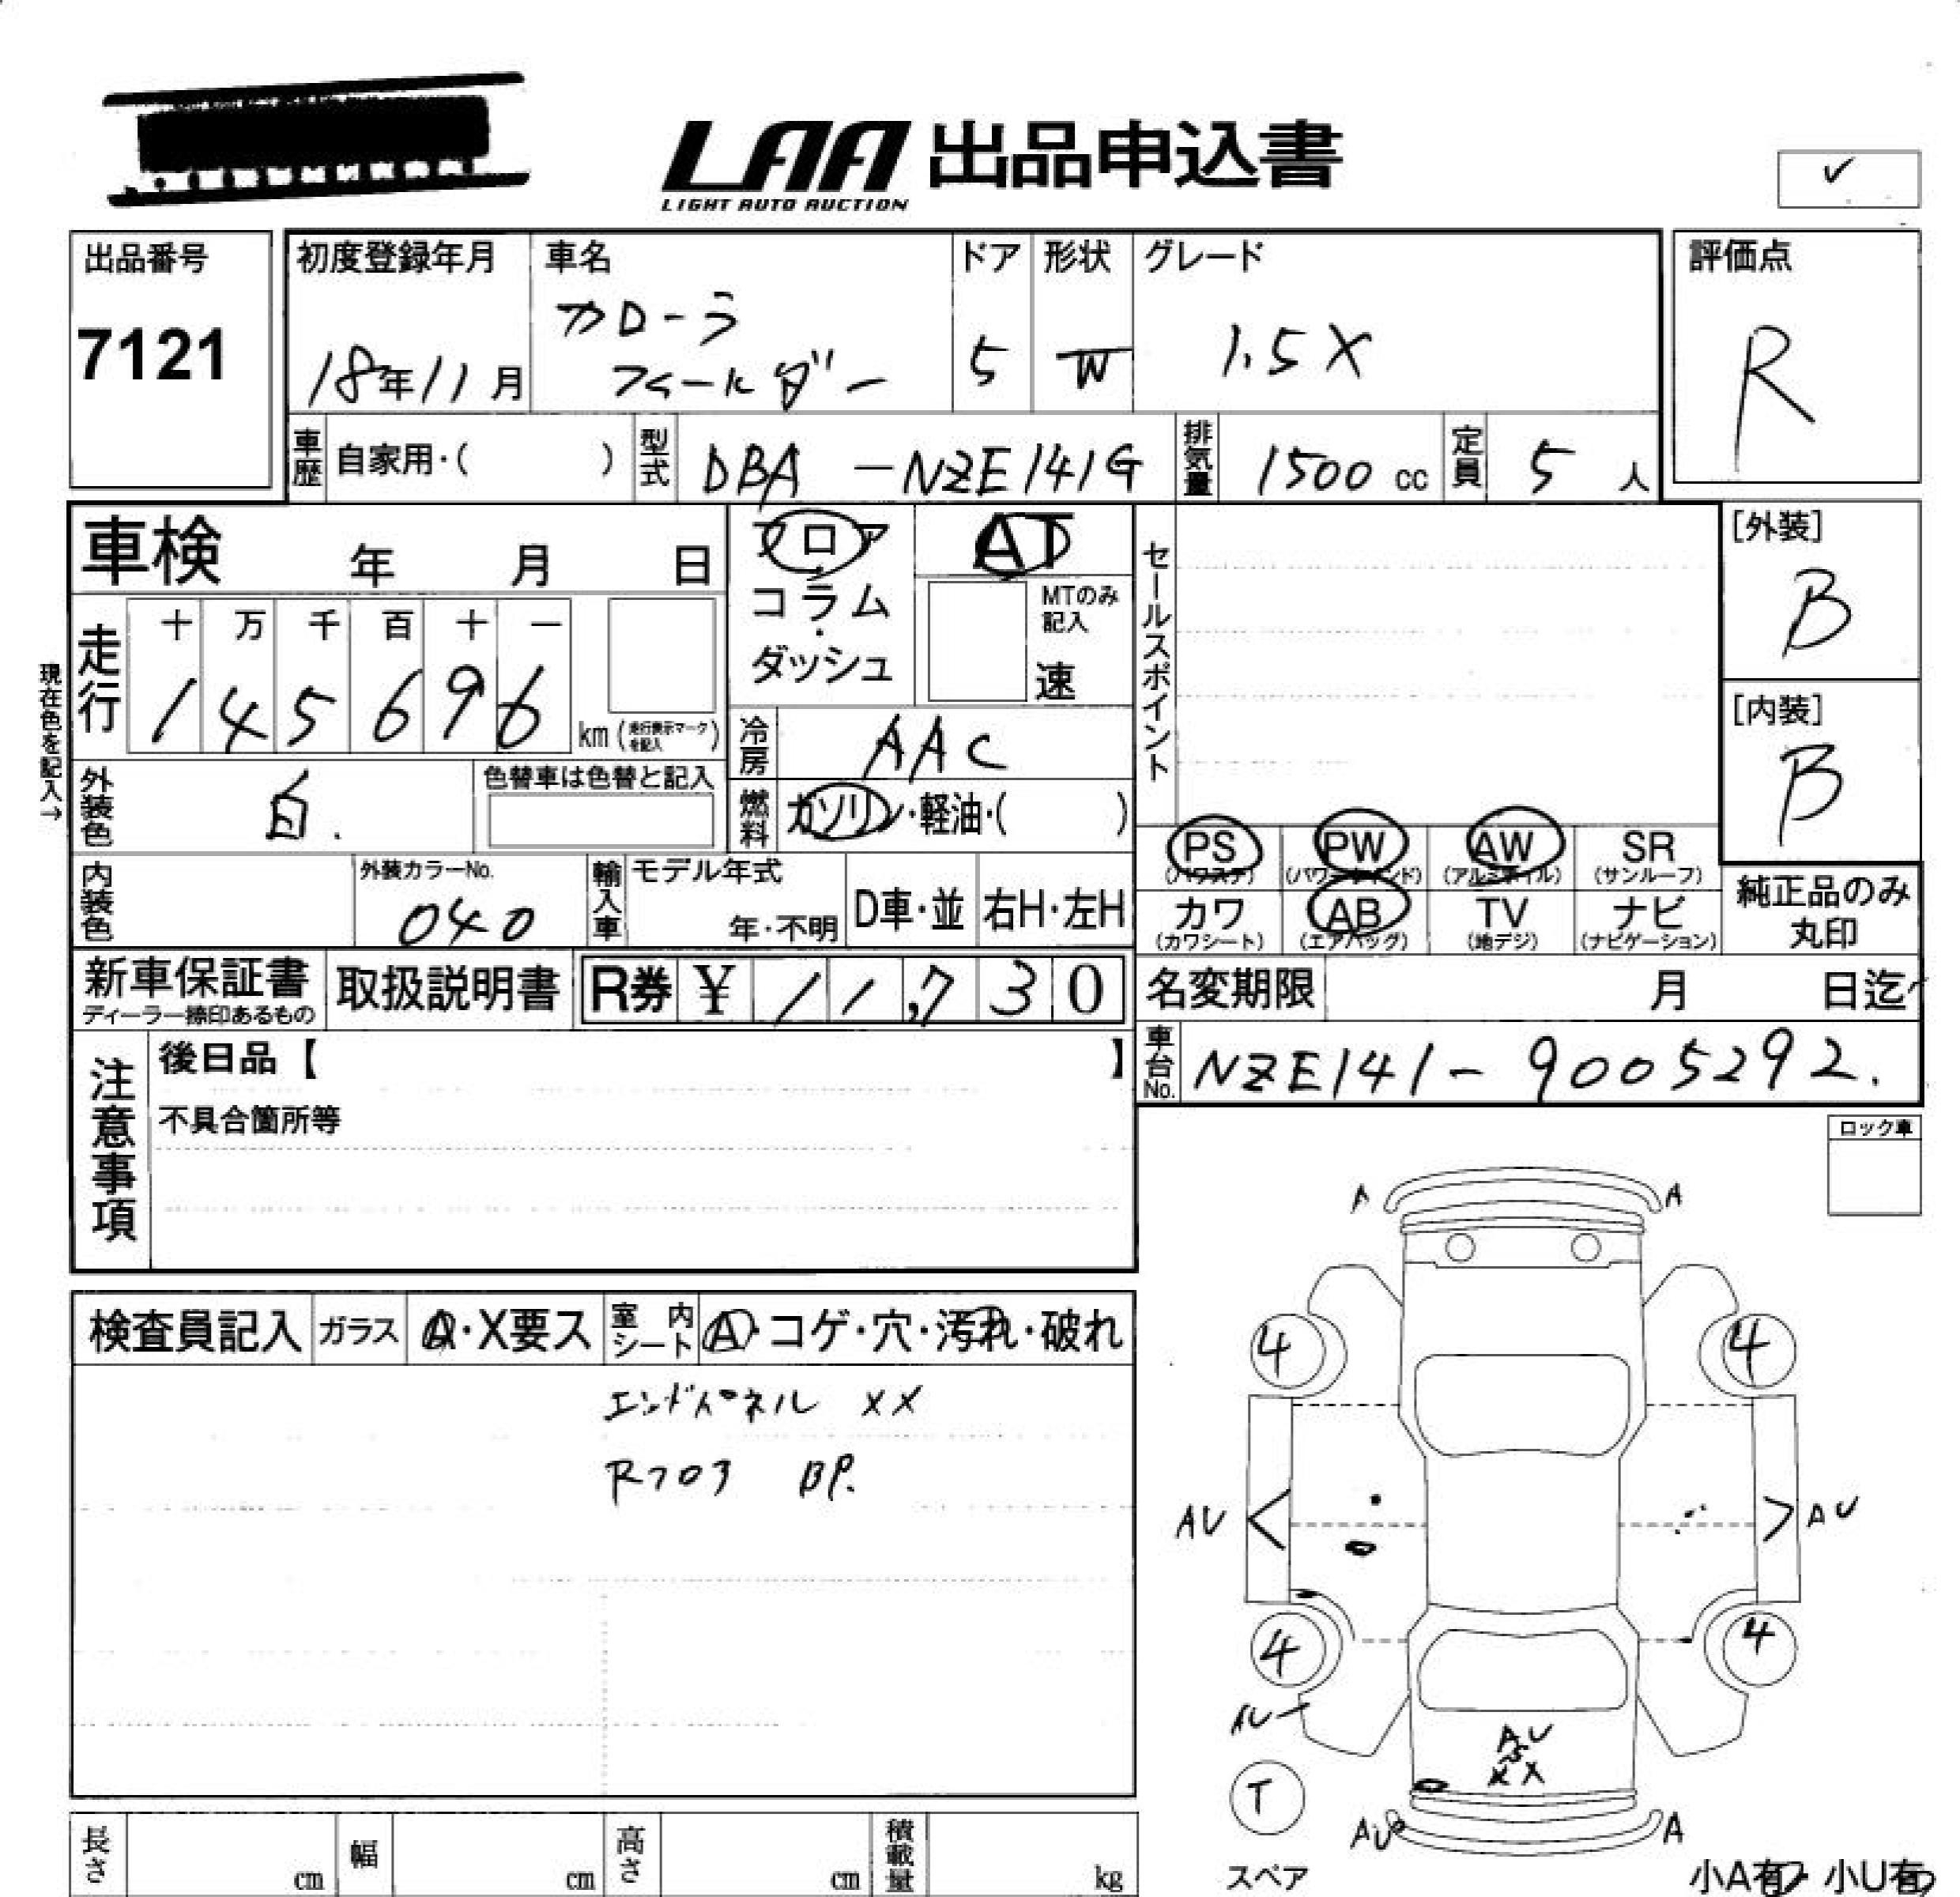 LAA 出品申込書
LIGHT AUTO AUCTION
✓
出品番号
7121
初度登録年月
18年11月
車名
カローラ
フィールダー
ドア
5
形状
W
グレード
1.5X
評価点
R
車歴 自家用・( )
型式 DBA -NZE141G
排気量 1500 cc
定員 5 人
車検 年 月 日
フロア・コラム・ダッシュ
AT
MTのみ記入
速
セールスポイント
[外装]
B
[内装]
B
現在色を記入→
走行 十 万 千 百 十 一
1 4 5 6 9 6 km (走行表示マークを記入)
冷房 AAC
外装色 白.
色替車は色替と記入
燃料 ガソリン・軽油・( )
PS (パワステ) PW (パワーウインド) AW (アルミホイル) SR (サンルーフ)
カワ (カワシート) AB (エアバッグ) TV (地デジ) ナビ (ナビゲーション)
純正品のみ
丸印
内装色
外装カラーNo.
040
輸入車 モデル年式
年・不明
D車・並 右H・左H
新車保証書
ディーラー捺印あるもの
取扱説明書
R券 ¥ 11,730
名変期限 月 日迄
車台No. NZE141-9005292.
注意事項
後日品【 】
不具合箇所等
ロック車
検査員記入 ガラス A・X要ス 室内シート A・コゲ・穴・汚れ・破れ
エンドパネル XX
Rフロア BP.
A A
4 4
AU AU
4 4
AU
AU
XX
T
スペア
AU A
小A有 小U有
長さ cm 幅 cm 高さ cm 積載量 kg